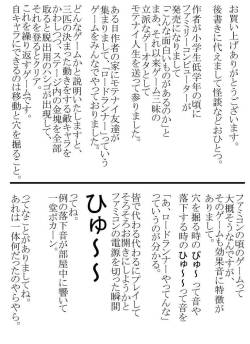 お買い上げありがとうございます。
後書きに代えまして怪談などおひとつ。
作者が小学生低学年の頃に
ファミリーコンピューターが
発売になりまして
「こんな面白いものがあるのか」と
まあそれ以来ウン十年、一端の
立派なゲームオタクとして
モテナイ人生を送って参りました。
ある日作者の家にモテナイ友達が
集まりまして、「ロードランナー」っていう
ゲームをみんなでやっておりました。
どんなゲームかと説明いたしますと、
一匹の決まった動きをする敵キャラを
かわしつつステージ内の金塊を全て
取ると脱出用のハシゴが出現して、
それを登るとクリア。
それを繰り返すゲームです。
自キャラができるのは移動と穴を掘ること。
ファミコンの頃のゲームって
大概そうなんですが、
そのゲームも効果音に特徴が
ありまして
穴を掘る時の「びゅ〜」って音や
落下する時の「ひゅ〜〜」って音を
出すんですね。
「あ、ロードランナーやってんな」
っていうのがわかる。
皆で代わる代わるにプレイして
そろそろお開きにすっかと
ファミコンの電源を切った瞬間
ひゅ〜〜
ってね。
例の落下音が部屋中に響いて
一堂ポカーン。
ってなことがありましてね。
あれは一体何だったのやらやら。